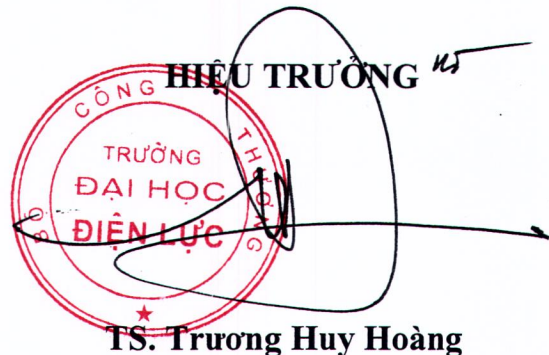 HIỆU TRƯỞNG
BỘ CÔNG THƯƠNG
TRƯỜNG
ĐẠI HỌC
ĐIỆN LỰC
TS. Trương Huy Hoàng